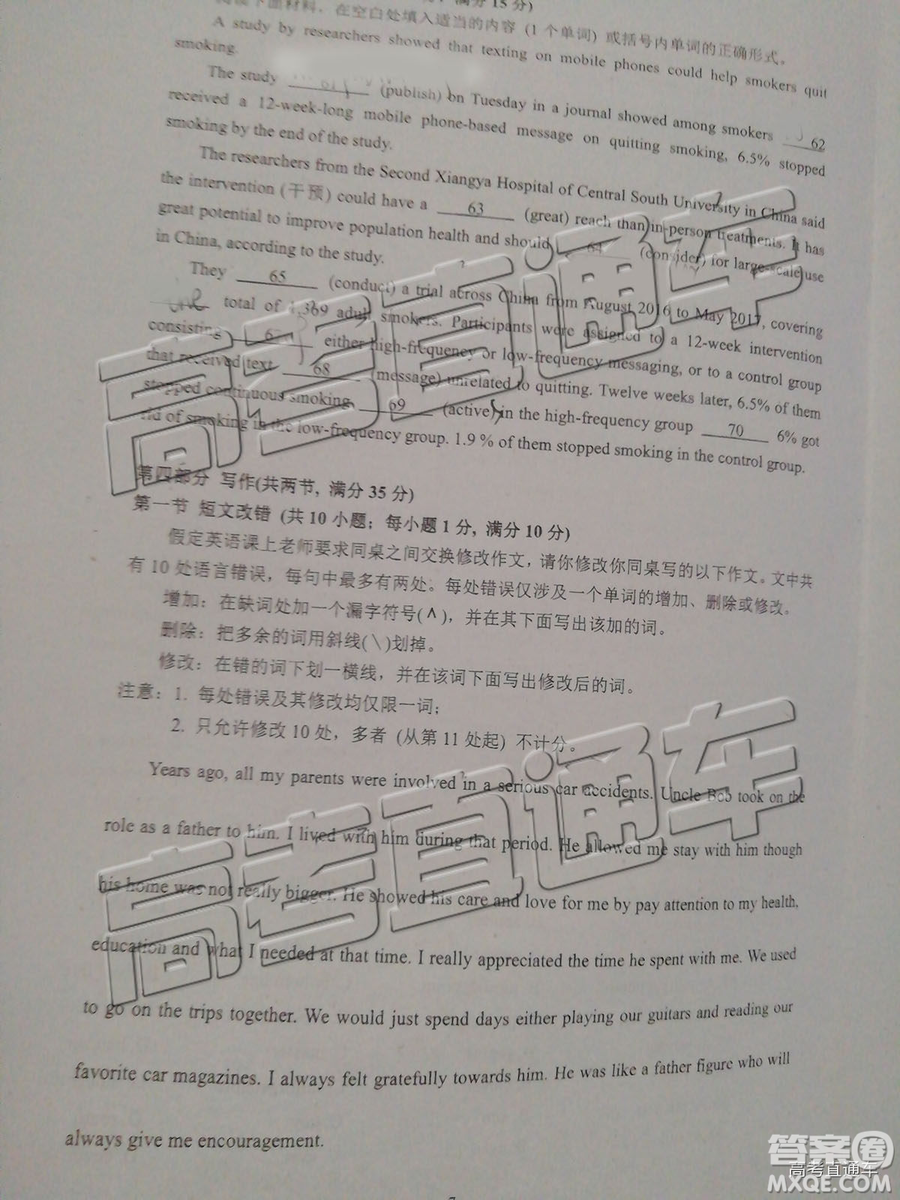 阅读下面材料,在空白处填入适当的内容 (1 个单词) 或括号内单词的正确形式。
A study by researchers showed that texting on mobile phones could help smokers quit
smoking.
The study 61 (publish) on Tuesday in a journal showed among smokers 62
received a 12-week-long mobile phone-based message on quitting smoking, 6.5% stopped
smoking by the end of the study.
The researchers from the Second Xiangya Hospital of Central South University in China said
the intervention (干预) could have a 63 (great) reach than in-person treatments. It has
great potential to improve population health and should 64 (consider) for large-scale use
in China, according to the study.
They 65 (conduct) a trial across China from August 2016 to May 2017, covering
total of 1,369 adult smokers. Participants were assigned to a 12-week intervention
consisting 67 either high-frequency or low-frequency messaging, or to a control group
that received text 68 (message) unrelated to quitting. Twelve weeks later, 6.5% of them
stopped continuous smoking 69 (active) in the high-frequency group 70 6% got
rid of smoking in the low-frequency group. 1.9 % of them stopped smoking in the control group.
第四部分 写作(共两节, 满分 35 分)
第一节 短文改错 (共 10 小题; 每小题 1 分, 满分 10 分)
假定英语课上老师要求同桌之间交换修改作文,请你修改你同桌写的以下作文。文中共
有 10 处语言错误,每句中最多有两处。每处错误仅涉及一个单词的增加、删除或修改。
增加:在缺词处加一个漏字符号(∧),并在其下面写出该加的词。
删除:把多余的词用斜线(\)划掉。
修改:在错的词下划一横线,并在该词下面写出修改后的词。
注意:1. 每处错误及其修改均仅限一词;
2. 只允许修改 10 处,多者 (从第 11 处起) 不计分。
Years ago, all my parents were involved in a serious car accidents. Uncle Bob took on the
role as a father to him. I lived with him during that period. He allowed me stay with him though
his home was not really bigger. He showed his care and love for me by pay attention to my health,
education and what I needed at that time. I really appreciated the time he spent with me. We used
to go on the trips together. We would just spend days either playing our guitars and reading our
favorite car magazines. I always felt gratefully towards him. He was like a father figure who will
always give me encouragement.
高考直通车
高考直通车
答案圈
高考直通车
MXQE.COM